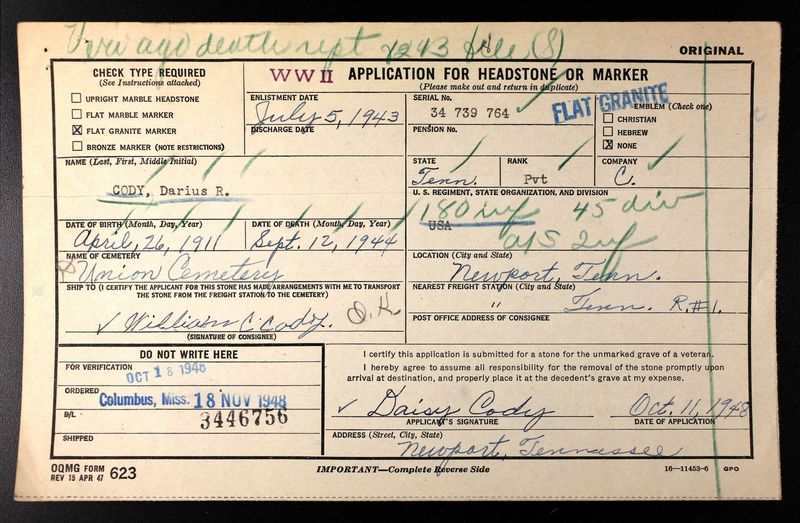 Veri ago death rept 1243 file (S)
ORIGINAL
CHECK TYPE REQUIRED
(See Instructions attached)
☐ UPRIGHT MARBLE HEADSTONE
☐ FLAT MARBLE MARKER
☒ FLAT GRANITE MARKER
☐ BRONZE MARKER (NOTE RESTRICTIONS)
WW II APPLICATION FOR HEADSTONE OR MARKER
(Please make out and return in duplicate)
ENLISTMENT DATE
July 5, 1943
DISCHARGE DATE
SERIAL No.
34 739 764
PENSION No.
FLAT GRANITE
EMBLEM (Check one)
☐ CHRISTIAN
☐ HEBREW
☒ NONE
NAME (Last, First, Middle Initial)
CODY, Darius R.
STATE
Tenn.
RANK
Pvt
COMPANY
C.
U. S. REGIMENT, STATE ORGANIZATION, AND DIVISION
180 inf 45 div
USA
DATE OF BIRTH (Month, Day, Year)
April, 26, 1911
DATE OF DEATH (Month, Day, Year)
Sept. 12, 1944
NAME OF CEMETERY
Union Cemetery
LOCATION (City and State)
Newport, Tenn.
SHIP TO (I CERTIFY THE APPLICANT FOR THIS STONE HAS MADE ARRANGEMENTS WITH ME TO TRANSPORT
THE STONE FROM THE FREIGHT STATION TO THE CEMETERY)
NEAREST FREIGHT STATION (City and State)
" Tenn. R.#1.
✓ William C. Cody. O.K.
(SIGNATURE OF CONSIGNEE)
POST OFFICE ADDRESS OF CONSIGNEE
DO NOT WRITE HERE
FOR VERIFICATION
OCT 18 1948
ORDERED
Columbus, Miss. 18 NOV 1948
B/L
3446756
SHIPPED
I certify this application is submitted for a stone for the unmarked grave of a veteran.
I hereby agree to assume all responsibility for the removal of the stone promptly upon
arrival at destination, and properly place it at the decedent's grave at my expense.
✓ Daisy Cody
APPLICANT'S SIGNATURE
Oct. 11, 1948
DATE OF APPLICATION
ADDRESS (Street, City, State)
Newport, Tennessee
OQMG FORM
REV 15 APR 47 623
IMPORTANT—Complete Reverse Side
16—11453-6 GPO